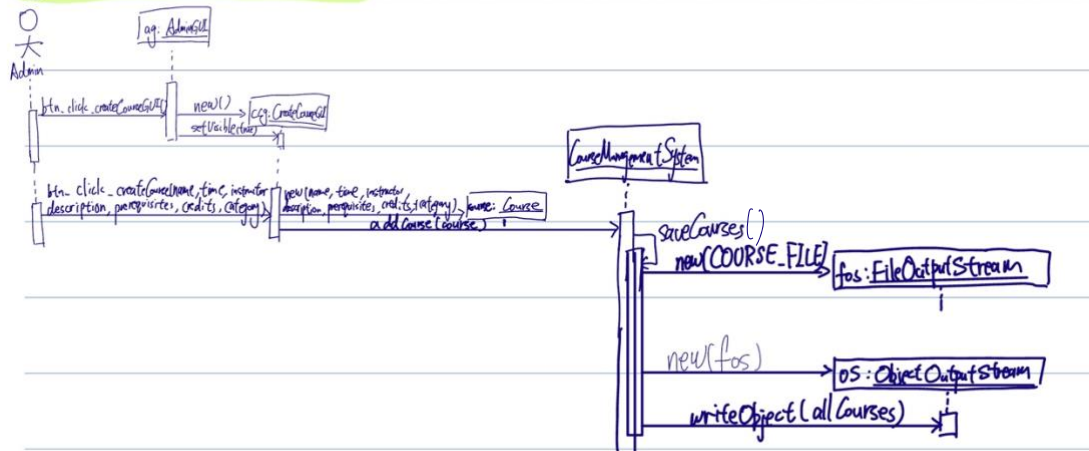 ag: AdminGUI
Admin
btn_click_createCourseGUI()
new()
ccg: CreateCourseGUI
setVisible(true)
CourseManagementSystem
btn_click_createCourse(name, time, instructor
description, prerequisites, credits, category)
new(name, time, instructor,
description, prerequisites, credits, category)
course: Course
addCourse(course)
saveCourses()
new(COURSE_FILE)
fos: FileOutputStream
new(fos)
os: ObjectOutputStream
writeObject(allCourses)